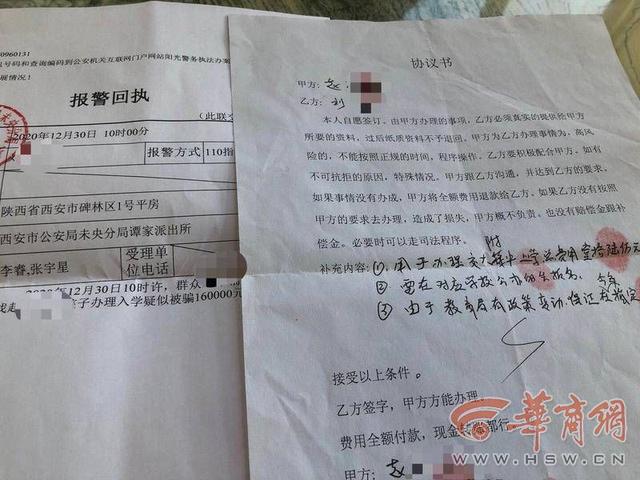 0960131
号码和查询编码到公安机关互联网门户网站阳光警务执法办案
展情况！
报警回执
（此联交
2020年12月30日 10时00分
报警方式
110指
陕西省西安市碑林区1号平房
西安市公安局未央分局谭家派出所
李睿,张宇星
受理单
位电话
2020年12月30日10时许，群众
子办理入学疑似被骗160000元
协议书
甲方：赵
乙方：刘
本人自愿签订，由甲方办理的事项，乙方必须真实的提供给甲方
所要的资料，过后纸质资料不予退回，甲方为乙方办理事情为，高风
险的，不能按照正规的时间，程序操作。乙方要积极配合甲方，如有
不可抗拒的原因，特殊情况。甲方跟乙方沟通，并达到乙方的要求，
如果事情没有办成，甲方将全额费用退款给乙方。如果乙方没有按照
甲方的要求去办理，造成了损失，甲方概不负责。也没有赔偿金跟补
偿金。必要时可以走司法程序。
附
补充内容：① 用于办理交大 上学总费用壹拾陆万元
② 需在对应学校公办招生报名，
③ 由于教育局有政策变动，保证在指定
接受以上条件。
乙方签字，甲方方能办理。
费用全额付款，现金转账都行。
甲方：赵
華商網
WWW.HSW.CN